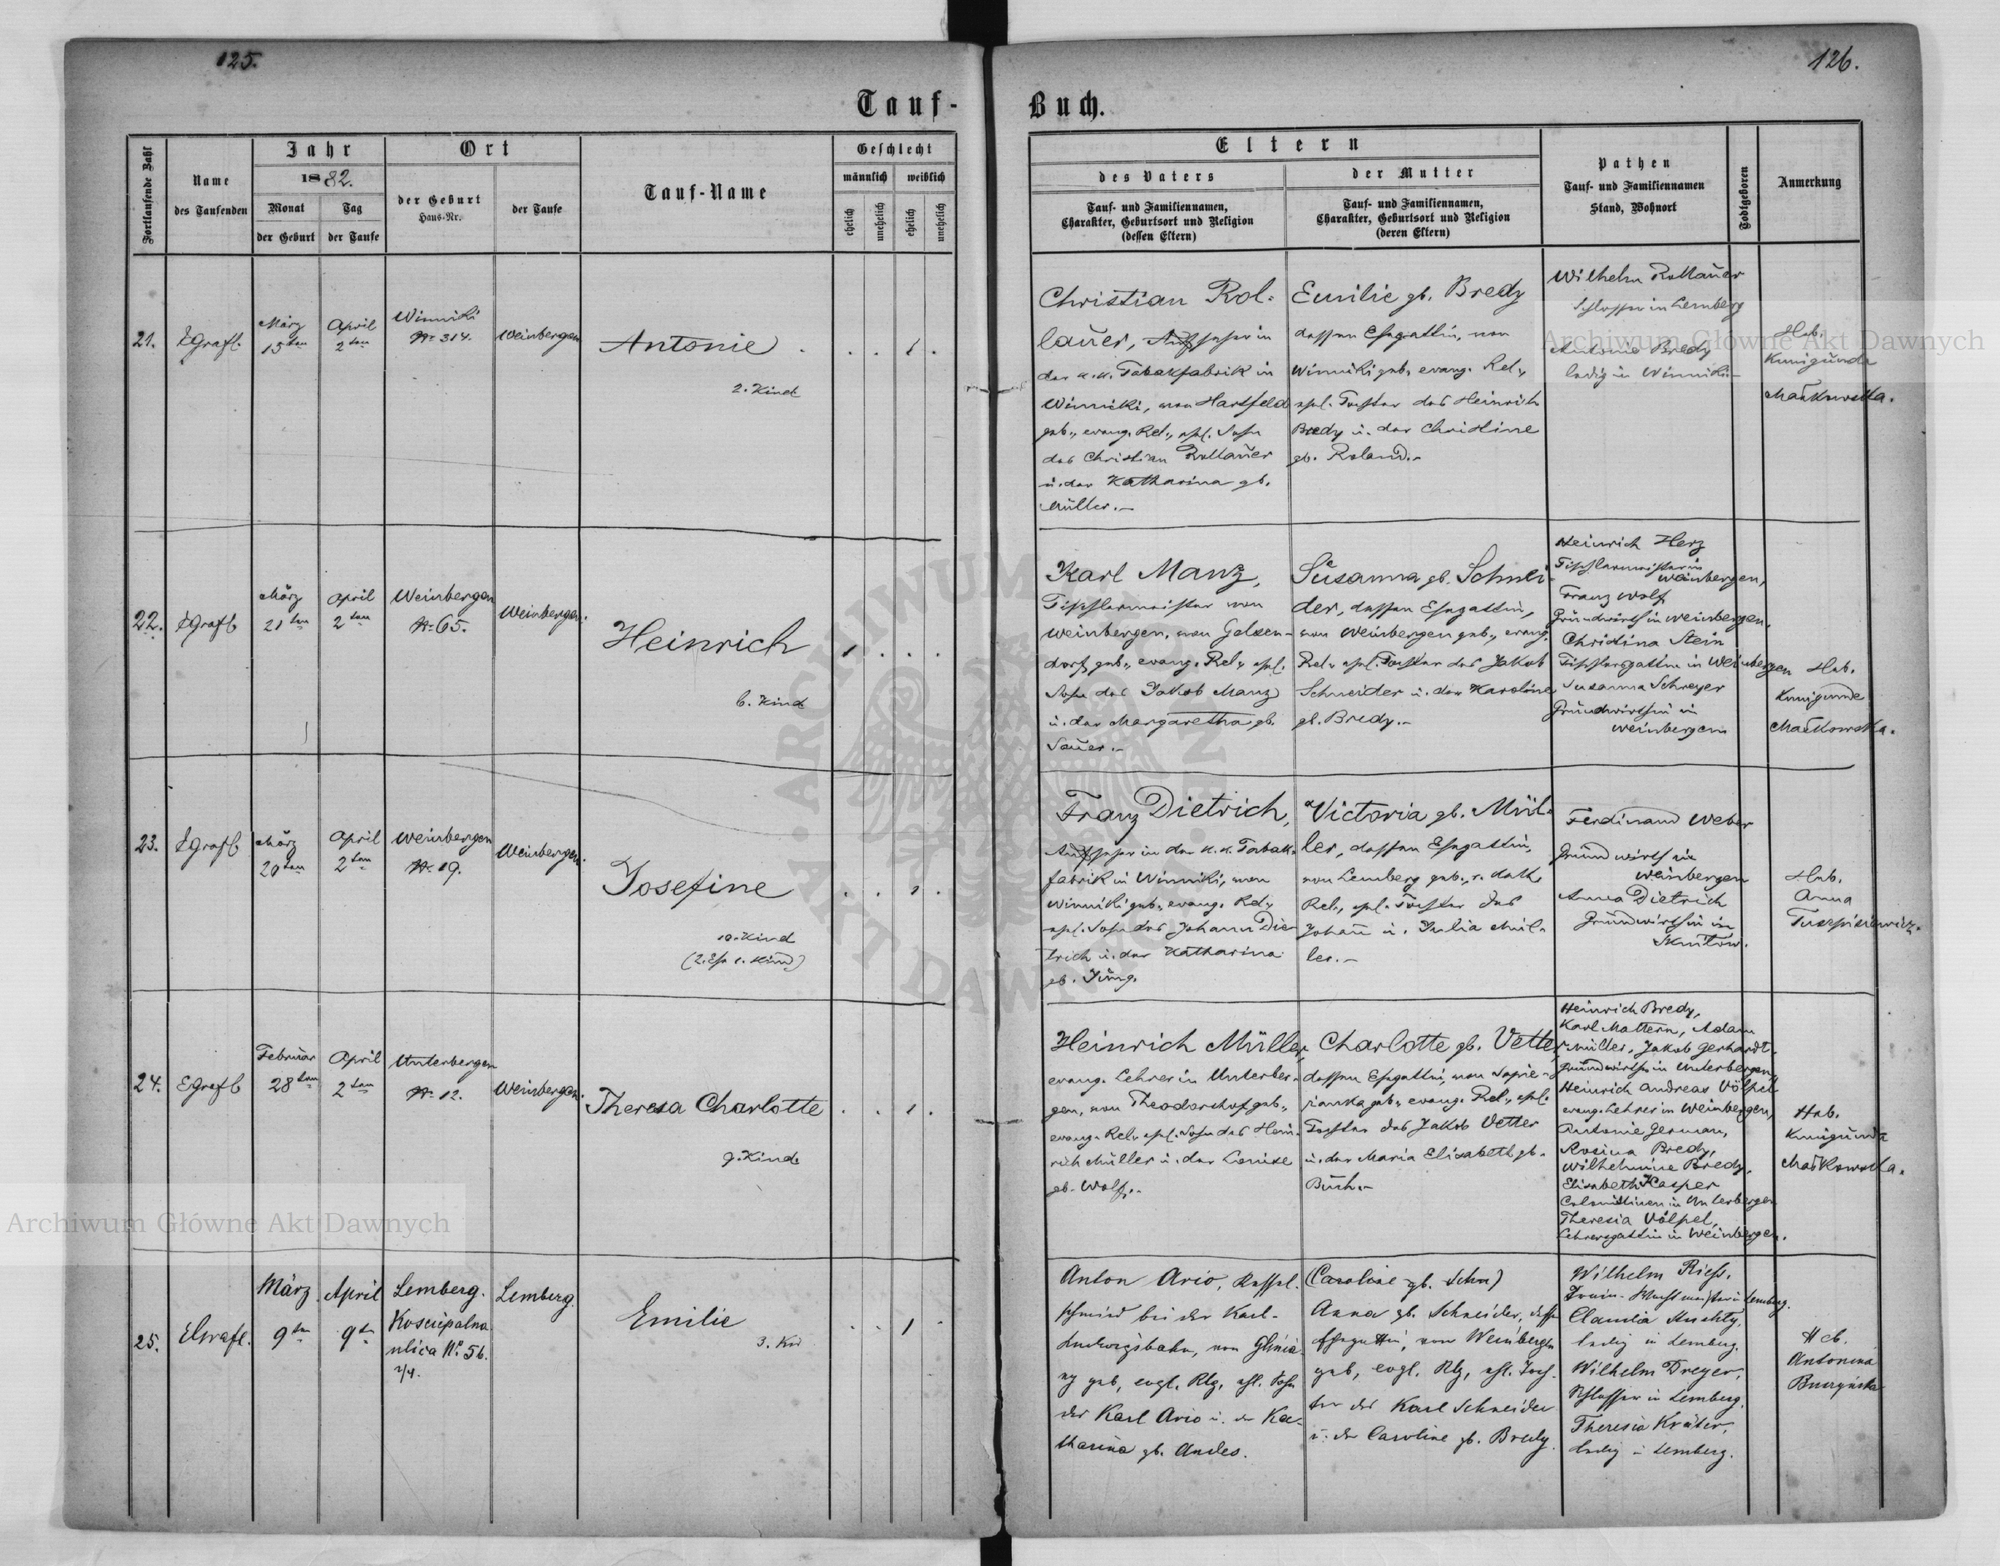 125.
126.
Tauf-
Buch.
Fortlaufende Zahl
Name
des Taufenden
Jahr
1882.
Monat
der Geburt
Tag
der Taufe
Ort
der Geburt
Haus-Nr.
der Taufe
Tauf-Name
Geschlecht
männlich
weiblich
ehelich
unehelich
ehelich
unehelich
Eltern
des Vaters
Tauf- und Familiennamen,
Charakter, Geburtsort und Religion
(dessen Eltern)
der Mutter
Tauf- und Familiennamen,
Charakter, Geburtsort und Religion
(deren Eltern)
Pathen
Tauf- und Familiennamen
Stand, Wohnort
Todtgeboren
Anmerkung
21.
März
15ten
April
2ten
Winniki
Nr. 314.
Weinbergen
Antonie
2. Kind
1
Christian Rol-
lauer, Aufseher in
der k.k. Tabakfabrik in
Winniki, von Hartfeld
geb., evang. Rel., ehl. Sohn
des Christian Rollauer
u. der Katharina gb.
Müller.-
Emilie gb. Bredy
dessen Ehegattin, von
Winniki geb. evang. Rel.,
ehl. Tochter des Heinrich
Bredy u. der Christine
gb. Roland.-
Wilhelm Rollauer
Schlosser in Lemberg
Antonie Bredy
ledig in Winniki.-
Heb.
Kunigunda
Mačkowska.
22.
März
21ten
April
2ten
Weinbergen
Nr. 65.
Weinbergen.
Heinrich
6. Kind
1
Karl Manz,
Tischlermeister von
Weinbergen, von Gelsen-
dorf geb., evang. Rel., ehl.
Sohn des Jakob Manz
u. der Margaretha gb.
Sauer.-
Susanna gb. Schnei-
der, dessen Ehegattin,
von Weinbergen geb., evang.
Rel., ehl. Tochter des Jakob
Schneider u. der Karoline
gb. Bredy.-
Heinrich Herz
Tischlermeister in
Weinbergen,
Franz Wolf
Grundwirth in Weinbergen,
Christina Stein
Tischlersgattin in Weinbergen
Susanna Schreyer
Grundwirthin in
Weinbergen
Heb.
Kunigunde
Mačkowska.
23.
März
20ten
April
2ten
Weinbergen
Nr. 19.
Weinbergen.
Josefine
10. Kind
(2. Ehe 1. Kind)
1
Franz Dietrich,
Aufseher in der k.k. Tabak-
fabrik in Winniki, von
Winniki geb., evang. Rel.,
ehl. Sohn des Johann Die-
trich u. der Katharina
gb. Jung.
Victoria gb. Mül-
ler, dessen Ehegattin,
von Lemberg geb., r. kath.
Rel., ehl. Tochter des
Johann u. Julia Mül-
ler.-
Ferdinand Weber
Grundwirth in
Weinbergen
Anna Dietrich
Grundwirthin in
Heb.
Anna
24.
Februar
28ten
April
2ten
Unterbergen
Nr. 12.
Weinbergen.
Theresa Charlotte
9. Kind
1
Heinrich Müller,
evang. Lehrer in Unterber-
gen, von Theodorshof geb.,
evang. Rel., ehl. Sohn des Hein-
rich Müller u. der Louise
gb. Wolf.-
Charlotte gb. Vetter
dessen Ehegattin, von Sapie-
żanka geb., evang. Rel., ehl.
Tochter des Jakob Vetter
u. der Maria Elisabeth gb.
Buch.-
Heinrich Bredy,
Karl Mattern, Adam
Müller, Jakob Gerhardt-
Grundwirthe in Unterbergen,
Heinrich Andreas Völpel
evang. Lehrer in Weinbergen,
Antonie German,
Rosina Bredy,
Wilhelmine Bredy,
Elisabeth Kasper
Colonistinen in Unterbergen
Theresia Völpel,
Lehrersgattin in Weinbergen.
Heb.
Kunigunda
Mačkowska.
25.
März
9ten
April
9ten
Lemberg.
ulica No. 56.
Lemberg.
Emilie
3. Kind
1
Anton Ario, Kessel-
schmied bei der Karl-
Ludwigsbahn, von Glinia-
ny geb., evgl. Rlg, ehl. Sohn
des Karl Ario u. der Ka-
tharina gb. Andes.
(Caroline gb. Schn)
Anna gb. Schneider, dessen
Ehegattin, von Weinbergen
geb., evgl. Rlg, ehl. Toch-
ter des Karl Schneider
u. der Caroline gb. Bredy.
Wilhelm Riess,
Claudia
ledig in Lemberg.
Wilhelm Dreyer,
Schlosser in Lemberg.
Theresia Kräter,
ledig in Lemberg.
Heb.
Antonina
Archiwum Główne Akt Dawnych
Archiwum Główne Akt Dawnych
ARCHIWUM GŁÓWNE AKT DAWNYCH